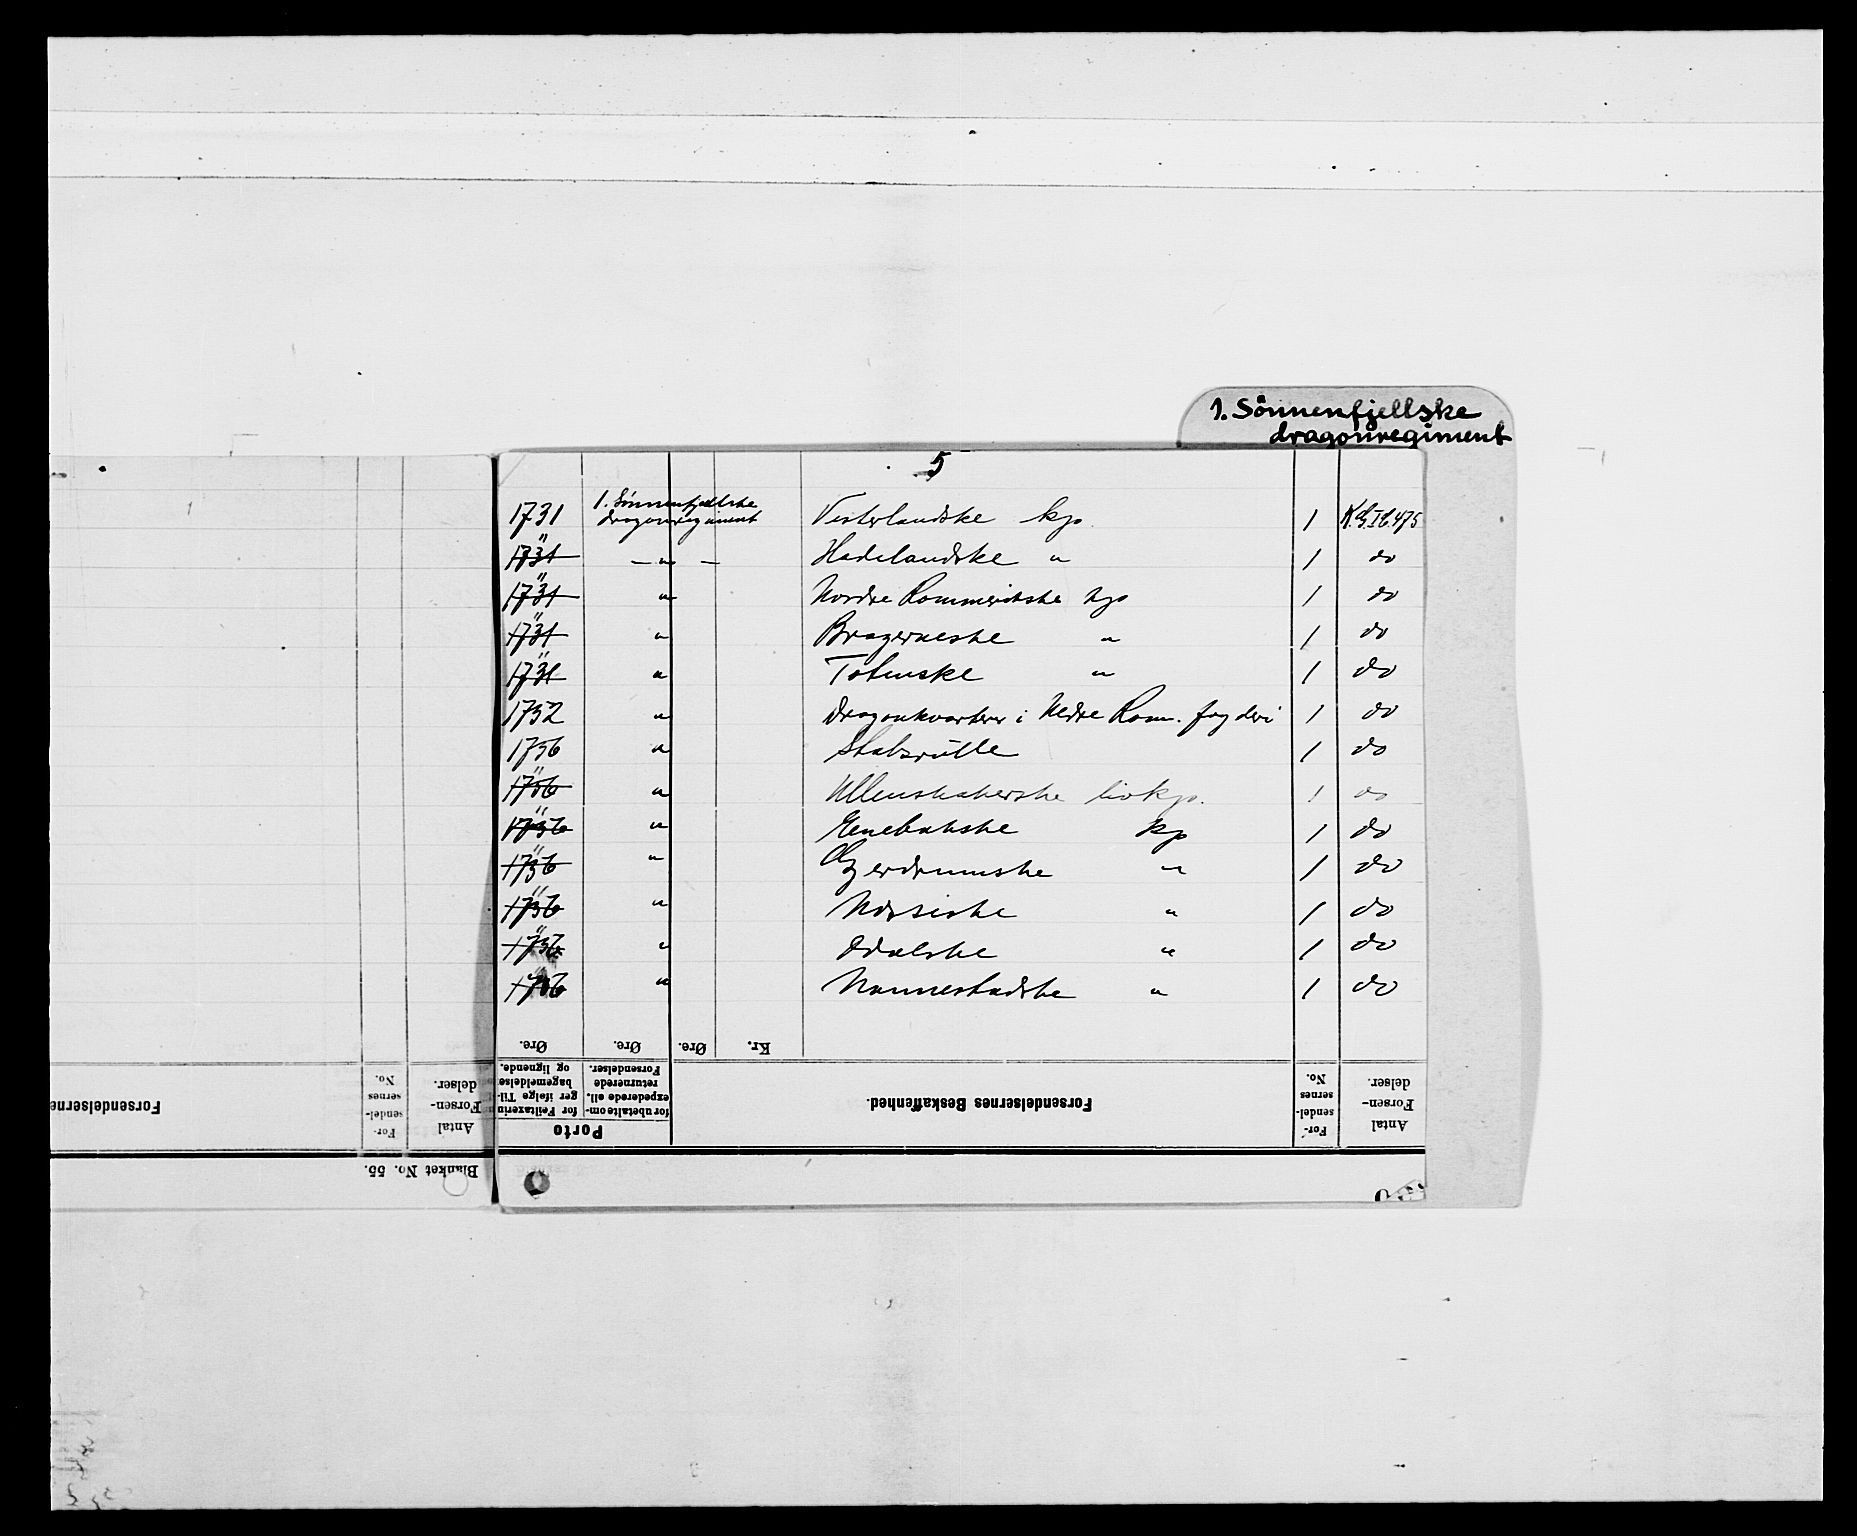 1. Sönnenfjellske
dragonregiment
5
1731 1. Sönnenfjellske dragonregiment Vesterlandske kp. 1
1731 " — " — Hadelandske " 1 do
1731 " " Nordre Rommerikske kp 1 do
1731 " " Bragerneske " 1 do
1731 " " Totenske " 1 do
1732 " Dragonkvarterer i Nedre Rom. fogderi 1 do
1736 " Stabsrulle 1 do
1736 " " Ullensakerske livkp. 1 do
1736 " " Enebakske kp 1 do
1736 " " Gjerdrumske " 1 do
1736 " " " 1 do
1736 " " Odalske " 1 do
1736 " " Nannestadske " 1 do
Øre. Øre. Øre. Kr.
Porto
for Feiltaxeringer ifølge Tilbagemeldelse og lignende.
for ubetalte omexpederede ell. returnerede Forsendelser.
Forsendelsernes Beskaffenhed.
Forsendelsernes No.
Antal Forsendelser.
Forsendelserne
Forsendelsernes No.
Antal Forsendelser.
Blanket No. 55.